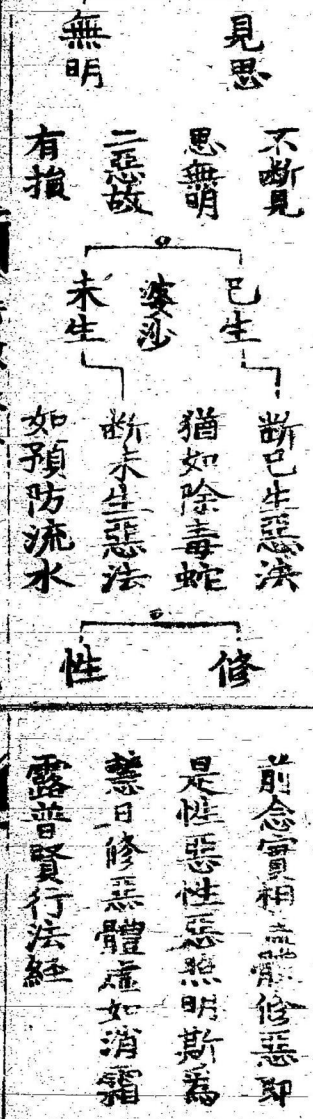 見思
無明
不斷見
思無明
二惡故
有損
已生
婆沙
未生
斷已生惡法
猶如除毒蛇
斷未生惡法
如預防流水
修
性
前念實相 修惡即
是性惡性惡照明斯爲
慧日修惡體虛如消霜
露普賢行法経